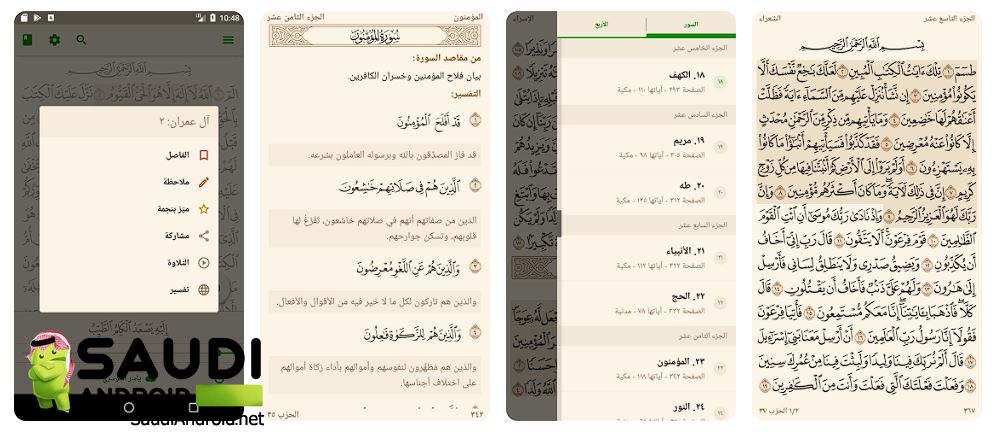 10:48
آل عمران: ٢
الفاصل
ملاحظة
ميّز بنجمة
مشاركة
التلاوة
تفسير
SAUDI
ANDROID
SaudiAndroid.net
المؤمنون
الجزء الثامن عشر
سورة المؤمنون
من مقاصد السورة:
بيان فلاح المؤمنين وخسران الكافرين.
التفسير:
قَدْ أَفْلَحَ الْمُؤْمِنُونَ ١
قد فاز المصدّقون بالله وبرسوله العاملون بشرعه.
الَّذِينَ هُمْ فِي صَلَاتِهِمْ خَاشِعُونَ ٢
الذين من صفاتهم أنهم في صلاتهم خاشعون، تَفْرُغُ لها
قلوبهم، وتسكن جوارحهم.
وَالَّذِينَ هُمْ عَنِ اللَّغْوِ مُعْرِضُونَ ٣
والذين هم تاركون لكل ما لا خير فيه من الأقوال والأفعال.
وَالَّذِينَ هُمْ لِلزَّكَاةِ فَاعِلُونَ ٤
والذين هم مُطهِّرون لنفوسهم وأموالهم بأداء زكاة أموالهم
على اختلاف أجناسها.
٣٤٢
الحزب ٣٥
الإسراء
السور
الأربع
الجزء الخامس عشر
١٨. الكهف
الصفحة ٢٩٣ - آياتها ١١٠ - مكية
١٨
الجزء السادس عشر
١٩. مريم
الصفحة ٣٠٥ - آياتها ٩٨ - مكية
١٩
٢٠. طه
الصفحة ٣١٢ - آياتها ١٣٥ - مكية
٢٠
الجزء السابع عشر
٢١. الأنبياء
الصفحة ٣٢٢ - آياتها ١١٢ - مكية
٢١
٢٢. الحج
الصفحة ٣٣٢ - آياتها ٧٨ - مدنية
٢٢
الجزء الثامن عشر
٢٣. المؤمنون
الصفحة ٣٤٢ - آياتها ١١٨ - مكية
٢٣
٢٤. النور
٢٤
الجزء التاسع عشر
الشعراء
بِسْمِ اللَّهِ الرَّحْمَٰنِ الرَّحِيمِ
طسٓمٓ ١ تِلْكَ ءَايَٰتُ ٱلْكِتَٰبِ ٱلْمُبِينِ ٢ لَعَلَّكَ بَٰخِعٌ نَّفْسَكَ أَلَّا
يَكُونُوا۟ مُؤْمِنِينَ ٣ إِن نَّشَأْ نُنَزِّلْ عَلَيْهِم مِّنَ ٱلسَّمَآءِ ءَايَةً فَظَلَّتْ
أَعْنَٰقُهُمْ لَهَا خَٰضِعِينَ ٤ وَمَا يَأْتِيهِم مِّن ذِكْرٍ مِّنَ ٱلرَّحْمَٰنِ مُحْدَثٍ
إِلَّا كَانُوا۟ عَنْهُ مُعْرِضِينَ ٥ فَقَدْ كَذَّبُوا۟ فَسَيَأْتِيهِمْ أَنۢبَٰٓؤُا۟ مَا كَانُوا۟
بِهِۦ يَسْتَهْزِءُونَ ٦ أَوَلَمْ يَرَوْا۟ إِلَى ٱلْأَرْضِ كَمْ أَنۢبَتْنَا فِيهَا مِن كُلِّ زَوْجٍ
كَرِيمٍ ٧ إِنَّ فِى ذَٰلِكَ لَءَايَةً وَمَا كَانَ أَكْثَرُهُم مُّؤْمِنِينَ ٨ وَإِنَّ
رَبَّكَ لَهُوَ ٱلْعَزِيزُ ٱلرَّحِيمُ ٩ وَإِذْ نَادَىٰ رَبُّكَ مُوسَىٰٓ أَنِ ٱئْتِ ٱلْقَوْمَ
ٱلظَّٰلِمِينَ ١٠ قَوْمَ فِرْعَوْنَ أَلَا يَتَّقُونَ ١١ قَالَ رَبِّ إِنِّىٓ أَخَافُ
أَن يُكَذِّبُونِ ١٢ وَيَضِيقُ صَدْرِى وَلَا يَنطَلِقُ لِسَانِى فَأَرْسِلْ
إِلَىٰ هَٰرُونَ ١٣ وَلَهُمْ عَلَىَّ ذَنۢبٌ فَأَخَافُ أَن يَقْتُلُونِ ١٤ قَالَ
كَلَّا فَٱذْهَبَا بِـَٔايَٰتِنَآ إِنَّا مَعَكُم مُّسْتَمِعُونَ ١٥ فَأْتِيَا فِرْعَوْنَ
فَقُولَآ إِنَّا رَسُولُ رَبِّ ٱلْعَٰلَمِينَ ١٦ أَنْ أَرْسِلْ مَعَنَا بَنِىٓ إِسْرَٰٓءِيلَ
١٧ قَالَ أَلَمْ نُرَبِّكَ فِينَا وَلِيدًا وَلَبِثْتَ فِينَا مِنْ عُمُرِكَ سِنِينَ
١٨ وَفَعَلْتَ فَعْلَتَكَ ٱلَّتِى فَعَلْتَ وَأَنتَ مِنَ ٱلْكَٰفِرِينَ ١٩
٣٦٧
١/٢ الحزب ٣٧